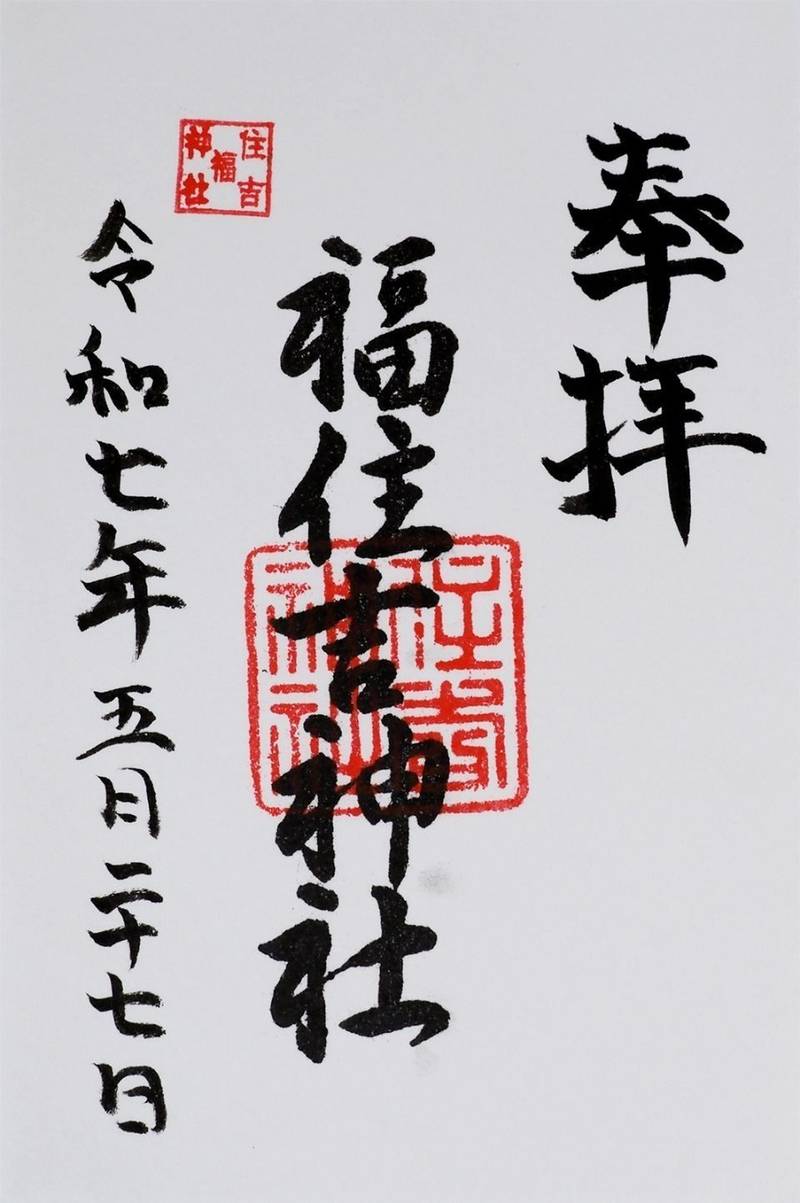 奉拝
福住吉神社
住吉
神社
住吉
福
神社
令和七年五月二十七日